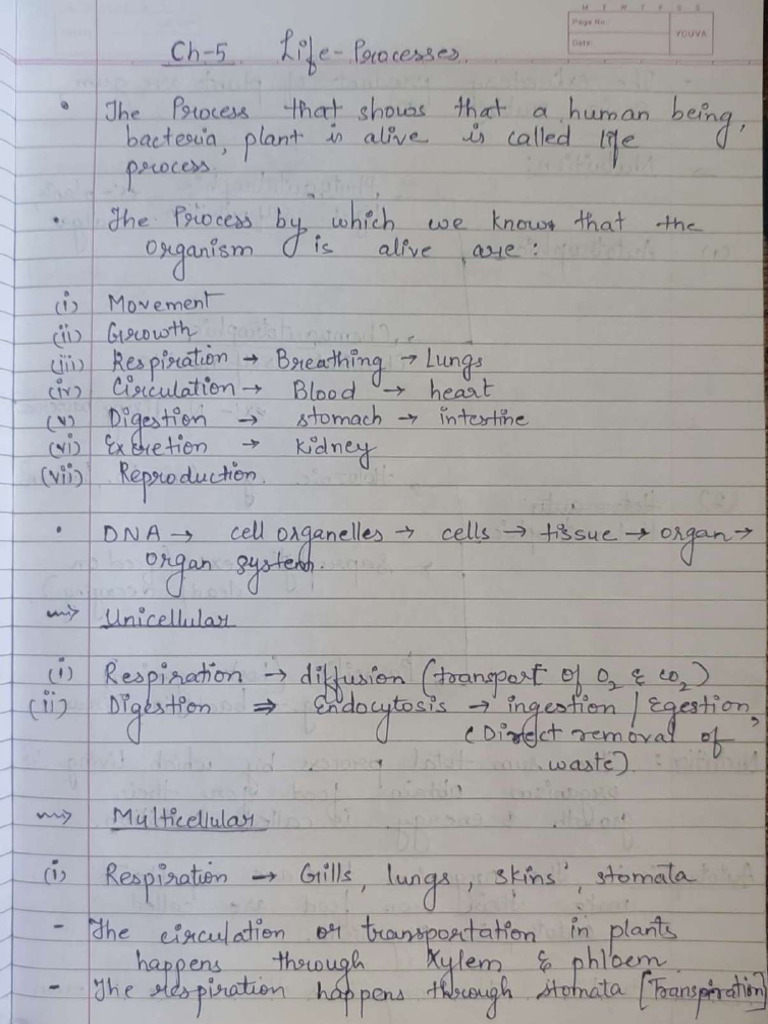 M T W T F S S
Page No.:
Date:
YOUVA
Ch-5 Life-Processes.
• The Process that shows that a human being,
bacteria, plant is alive is called life
process.
• The Process by which we know that the
organism is alive are:
(i) Movement
(ii) Growth
(iii) Respiration → Breathing → Lungs
(iv) Circulation → Blood → heart
(v) Digestion → stomach → intestine
(vi) Excretion → Kidney
(vii) Reproduction.
• DNA → cell organelles → cells → tissue → organ →
organ system.
⇝ Unicellular
(i) Respiration → diffusion (transport of O₂ & CO₂)
(ii) Digestion ⇒ Endocytosis → ingestion / Egestion,
(Direct removal of
waste).
⇝ Multicellular
(i) Respiration → Gills, lungs, skins, stomata
- The circulation or transportation in plants
happens through Xylem & phloem
- The respiration happens through stomata [Transpiration]